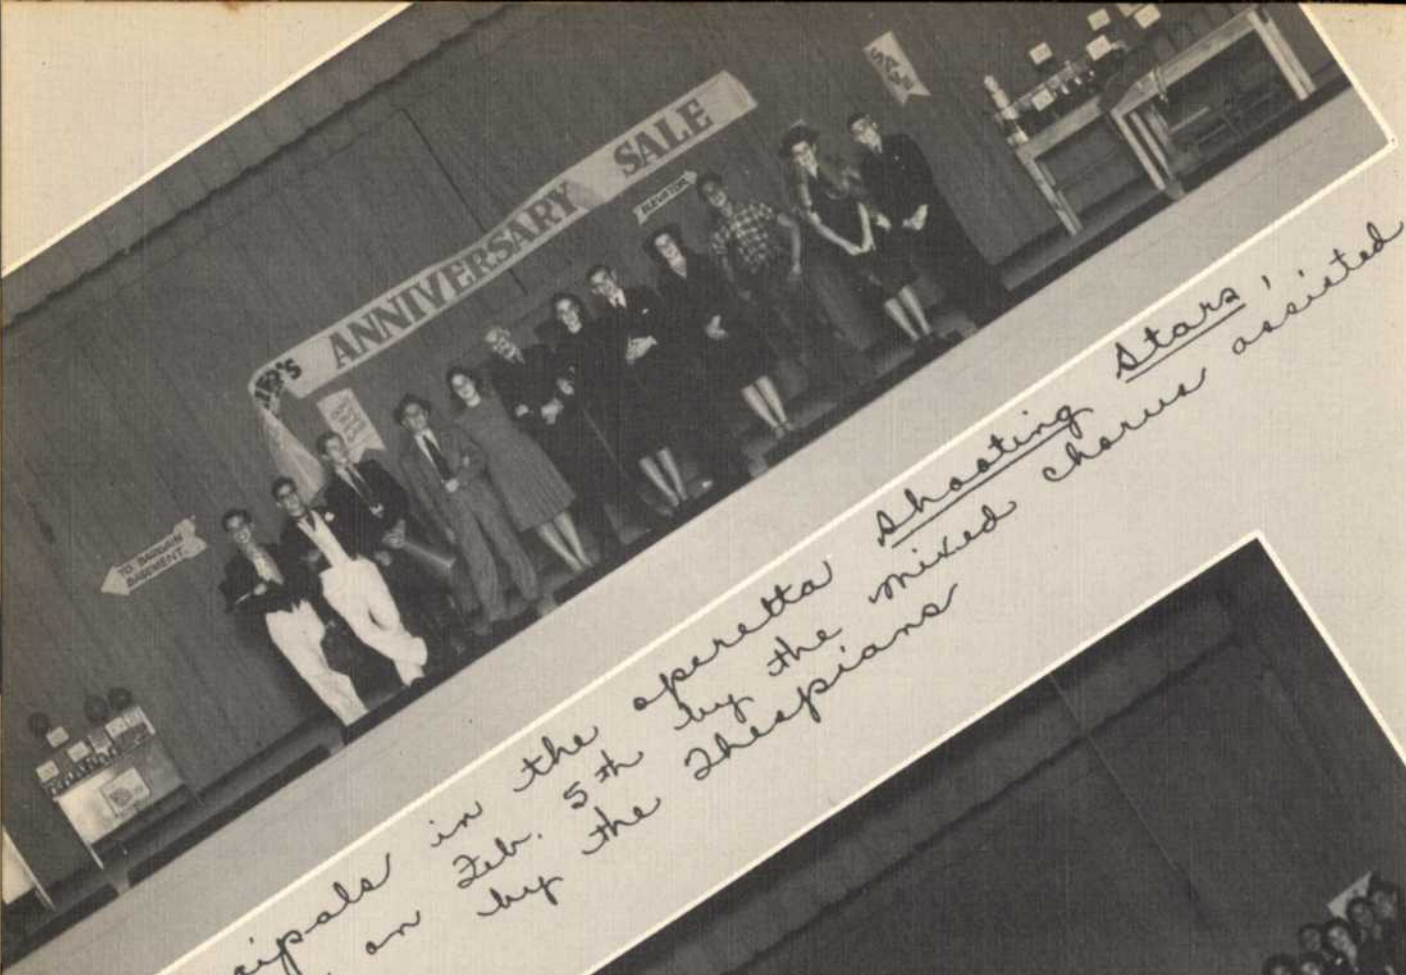 ANNIVERSARY SALE
SALE
ELEVATOR
TO BARGAIN
BASEMENT
cipals in the operetta Shooting Stars,
on Feb. 5th by the mixed chorus assisted
by the Thespians